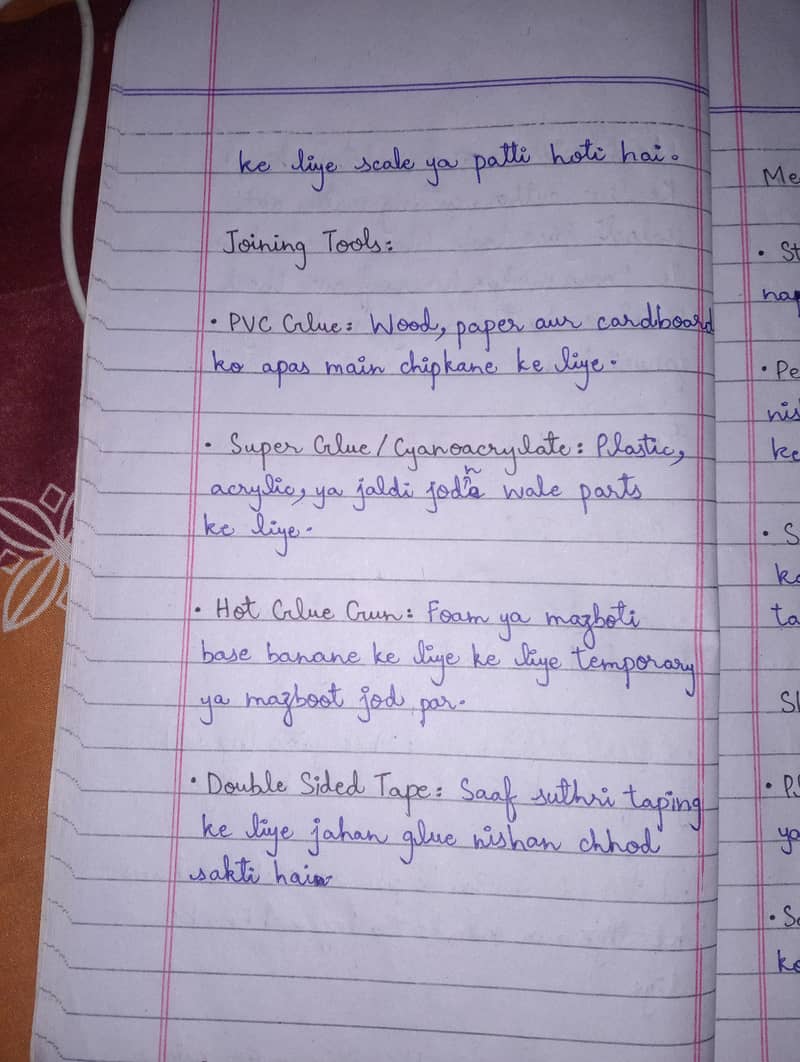 ke liye scale ya patti hoti hai.
Joining Tools:
• PVC Glue: Wood, paper aur cardboard
ko apas main chipkane ke liye.
• Super Glue/Cyanoacrylate: Plastic,
acrylic, ya jaldi jodne wale parts
ke liye.
• Hot Glue Gun: Foam ya mazboti
base banane ke liye ke liye temporary
ya mazboot jod par.
• Double Sided Tape: Saaf suthri taping
ke liye jahan glue nishan chhod
sakti hain
Me
• St
nap
• Pe
nis
ke
• S
ko
ta
Sl
• P.S
ya
• Sa
ko